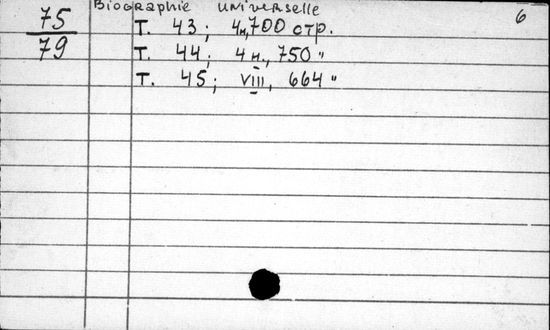 75
79
Biographie universelle
6
Т. 43; 4н, 700 стр.
Т. 44; 4н., 750 "
Т. 45; VIII, 664 "